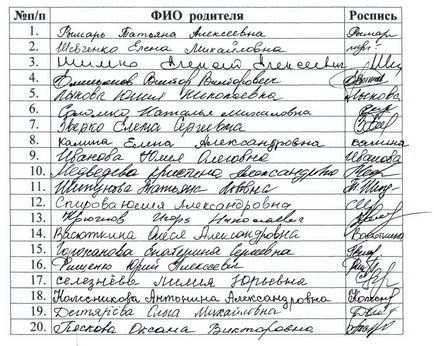 №п/п ФИО родителя Роспись
1. Рымарь Татьяна Алексеевна Рымар
2. Шевченко Елена Михайловна
3. Шилко Алексей Алексеевич
4. Виктор Викторович
5. Лыкова Юлия Николаевна Лыкова
6. Наталья Михайловна
7. Зверко Елена Сергеевна
8. Калина Елена Александровна Калина
9. Иванова Юлия Олеговна Иванова
10. Медведева Кристина Александровна
11. Шипунова Татьяна
12. Спирова Юлия Александровна
13. Крючков Игорь Николаевич
14. Васюткина Олеся Александровна
15. Екатерина Сергеевна
16. Грищенко Юрий Алексеевич
17. Селезнёва Лилия Юрьевна
18. Колесникова Антонина Александровна
19. Дегтярёва Ольга Михайловна
20. Пескова Оксана Викторовна